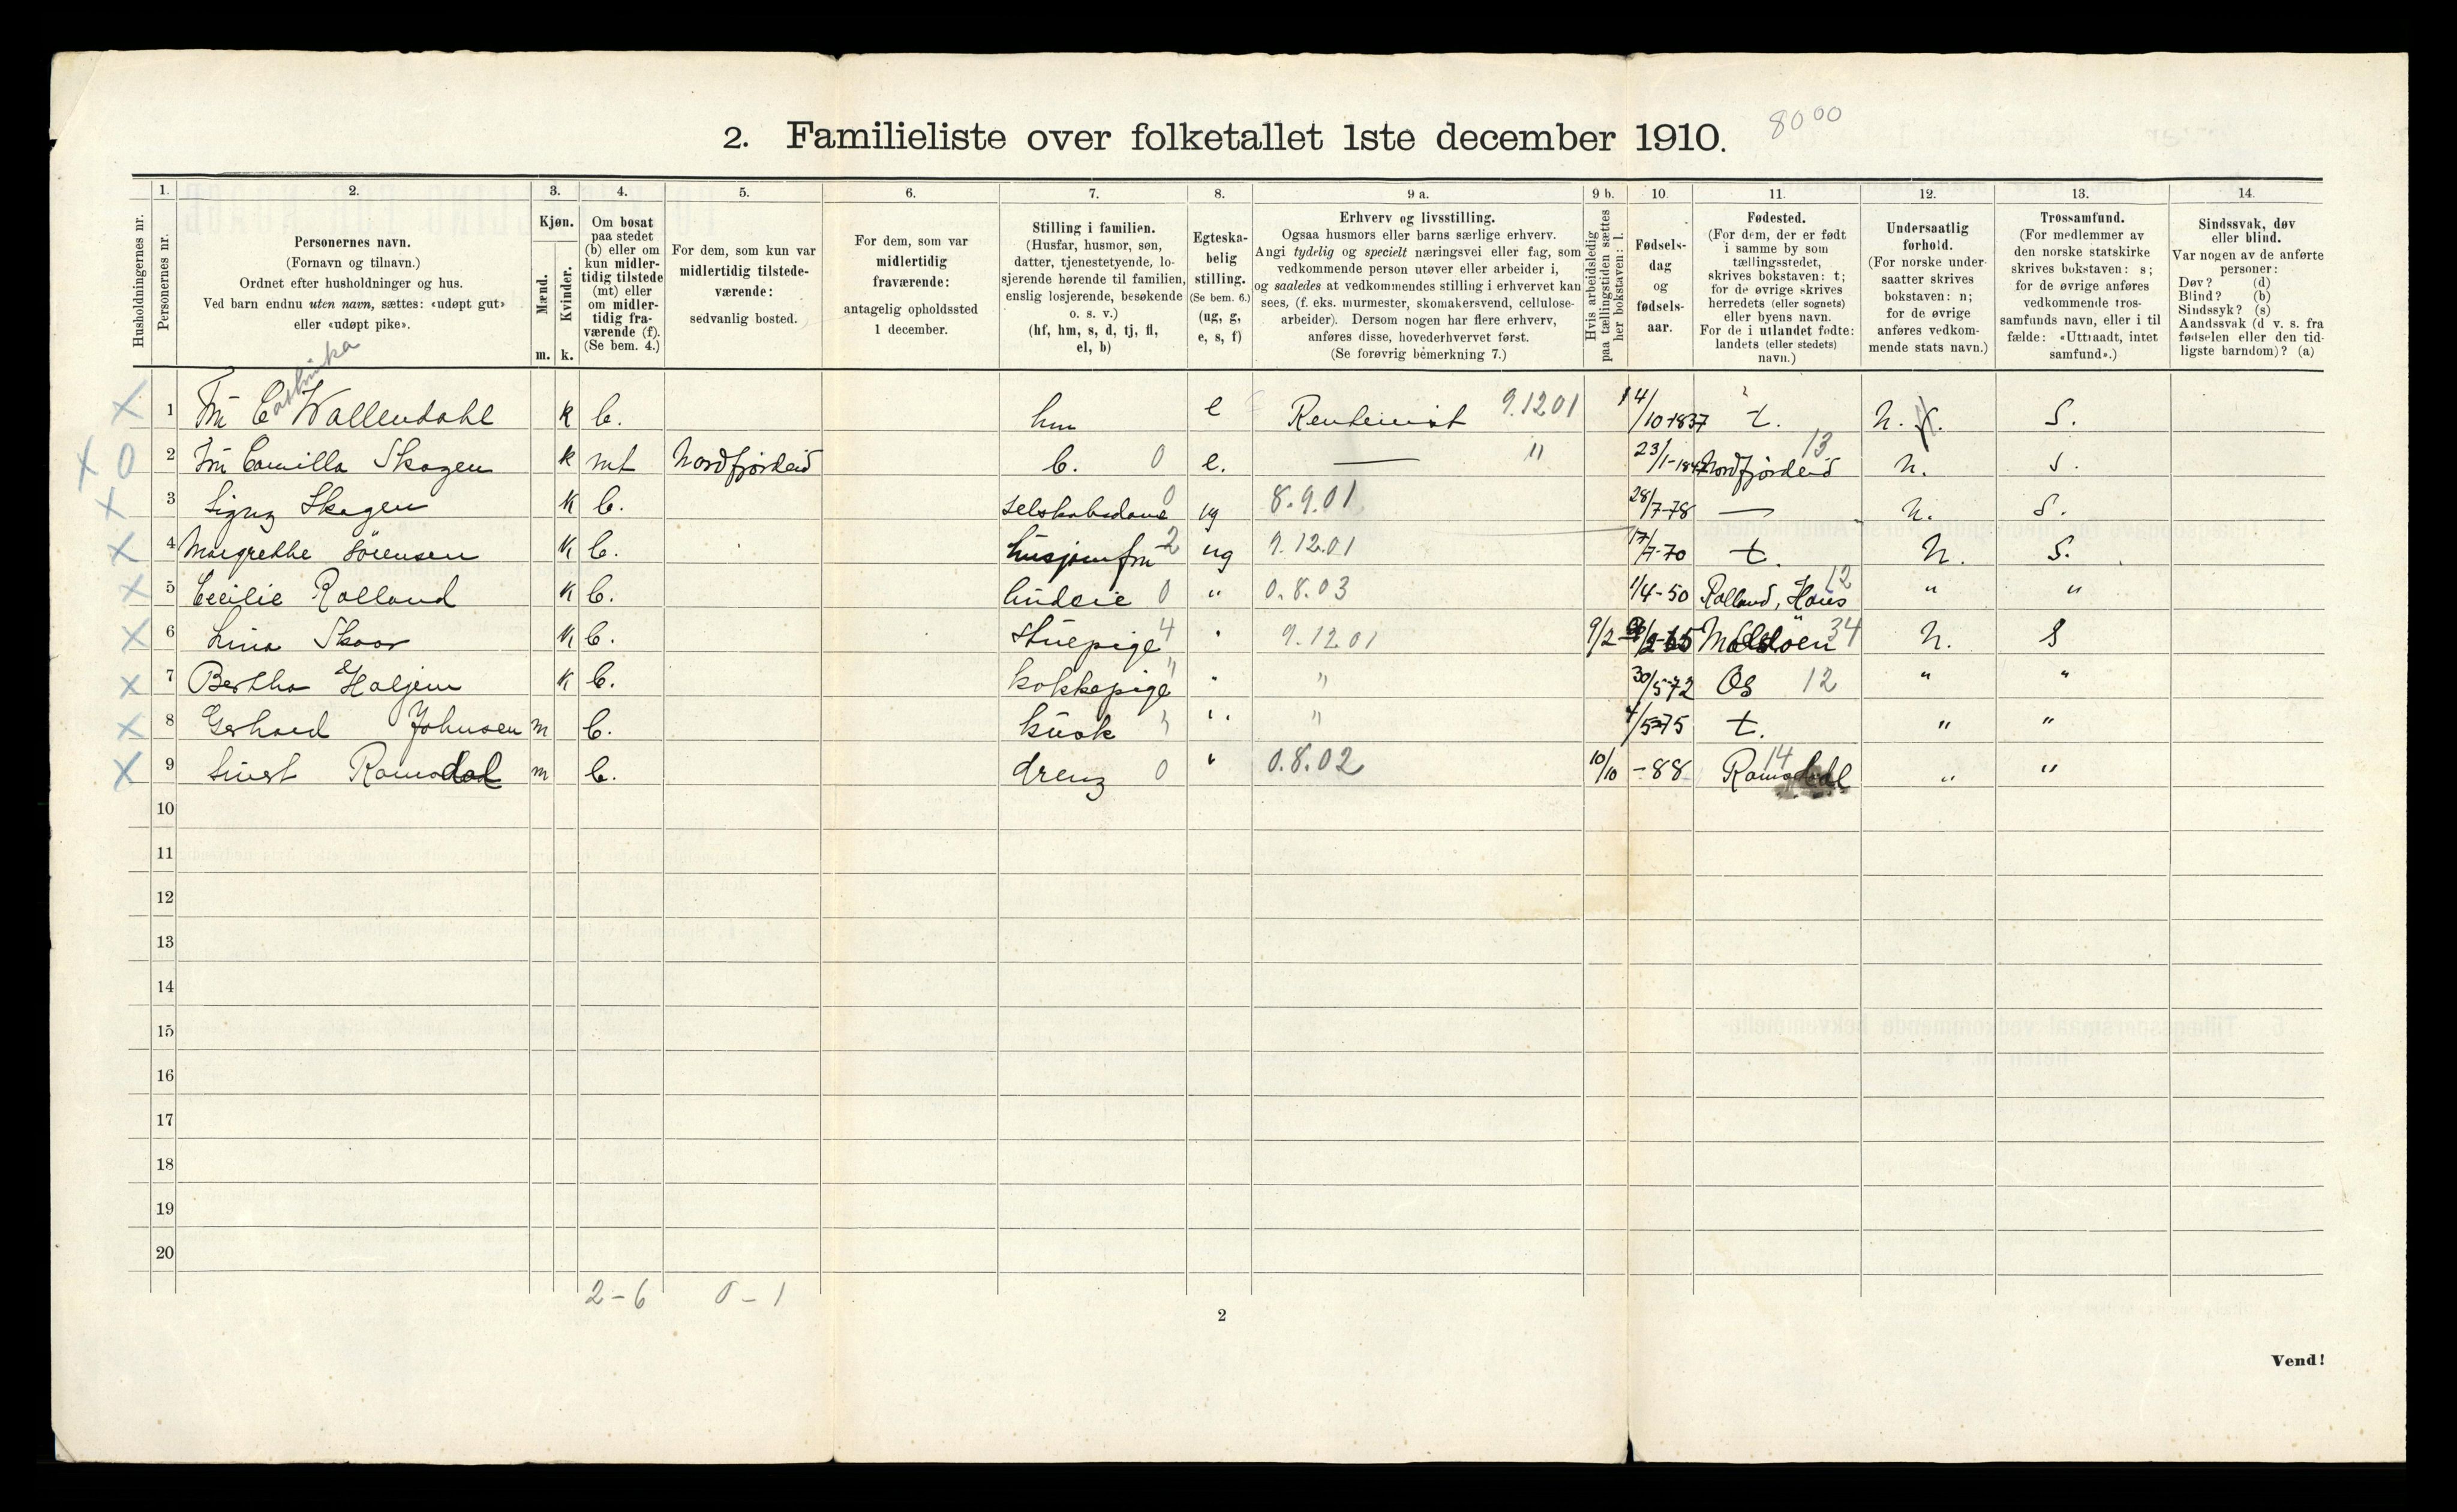 2. Familieliste over folketallet 1ste december 1910.
8000
Husholdningernes nr.
1.
Personernes nr.
2.
Personernes navn.
(Fornavn og tilnavn.)
Ordnet efter husholdninger og hus.
Ved barn endnu uten navn, sættes: «udøpt gut»
eller «udøpt pike».
3.
Kjøn.
Mænd.
Kvinder.
m. k.
4.
Om bosat
paa stedet
(b) eller om
kun midler-
tidig tilstede
(mt) eller
om midler-
tidig fra-
værende (f).
(Se bem. 4.)
5.
For dem, som kun var
midlertidig tilstede-
værende:
sedvanlig bosted.
6.
For dem, som var
midlertidig
fraværende:
antagelig opholdssted
1 december.
7.
Stilling i familien.
(Husfar, husmor, søn,
datter, tjenestetyende, lo-
sjerende hørende til familien,
enslig losjerende, besøkende
o. s. v.)
(hf, hm, s, d, tj, fl,
el, b)
8.
Egteska-
belig
stilling.
(Se bem. 6.)
(ug, g,
e, s, f)
9 a.
Erhverv og livsstilling.
Ogsaa husmors eller barns særlige erhverv.
Angi tydelig og specielt næringsvei eller fag, som
vedkommende person utøver eller arbeider i,
og saaledes at vedkommendes stilling i erhvervet kan
sees, (f. eks. murmester, skomakersvend, cellulose-
arbeider). Dersom nogen har flere erhverv,
anføres disse, hovederhvervet først.
(Se forøvrig bemerkning 7.)
9 b.
Hvis arbeidsledig
paa tællingstiden sættes
her bokstaven: l.
10.
Fødsels-
dag
og
fødsels-
aar.
11.
Fødested.
(For dem, der er født
i samme by som
tællingsstedet,
skrives bokstaven: t;
for de øvrige skrives
herredets (eller sognets)
eller byens navn.
For de i utlandet fødte:
landets (eller stedets)
navn.)
12.
Undersaatlig
forhold.
(For norske under-
saatter skrives
bokstaven: n;
for de øvrige
anføres vedkom-
mende stats navn.)
13.
Trossamfund.
(For medlemmer av
den norske statskirke
skrives bokstaven: s;
for de øvrige anføres
vedkommende tros-
samfunds navn, eller i til
fælde: «Uttraadt, intet
samfund».)
14.
Sindssvak, døv
eller blind.
Var nogen av de anførte
personer:
Døv? (d)
Blind? (b)
Sindssyk? (s)
Aandssvak (d v. s. fra
fødselen eller den tid-
ligste barndom)? (a)
X 1 Fru C Wallendahl k b. hm e Rentenist 9.1201 14/10 1837 t. n. S.
X 0 2 Fru Camilla Skogen k mt Nordfjordeid b. 0 e. — " 23/1-1847 Nordfjordeid 13 n. S.
X 3 Signy Skogen k b. selskabsdame 0 ug 8.9.01 28/7-78 — n. S.
X 4 Margrethe Sörensen k b. husjomfru 2 ug 9.12.01 17/7-70 t. n. S.
X 5 Cecilie Rolland k b. 0 " 0.8.03 1/4-50 Rolland, Haus 12 " "
X 6 Lina Skaar k b. Stuepige 4 " 9.12.01 9/2-65 34 n. S
X 7 Bertha Haljem k b. kokkepige " " " 30/5-72 Os 12 " "
X 8 Gerhard Johnsen m b. kusk " " " 4/5-75 t. " "
X 9 Romsdal m b. dreng 0 " 0.8.02 10/10 -88 Romsdal 14 " "
10
11
12
13
14
15
16
17
18
19
20
2-6 0-1
2
Vend!